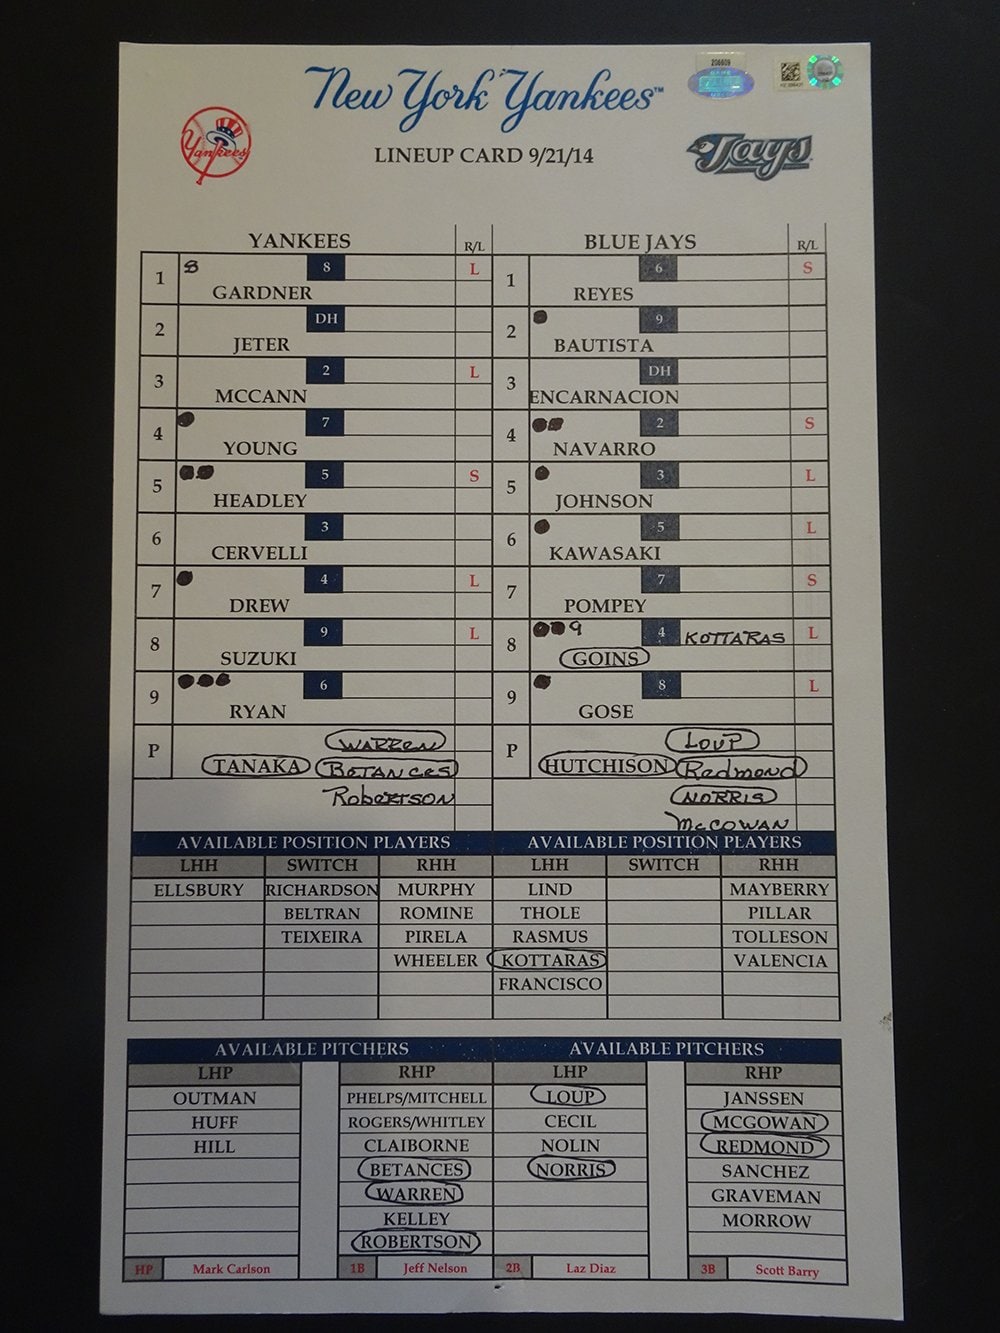 208609
New York Yankees™
Yankees
LINEUP CARD 9/21/14
Jays
YANKEES R/L BLUE JAYS R/L
1 8 8 L 1 6 S
GARDNER REYES
2 DH 2 9
JETER BAUTISTA
3 2 L 3 DH
MCCANN ENCARNACION
4 7 4 2 S
YOUNG NAVARRO
5 5 S 5 3 L
HEADLEY JOHNSON
6 3 6 5 L
CERVELLI KAWASAKI
7 4 L 7 7 S
DREW POMPEY
8 9 L 8 9 4 KOTTARAS L
SUZUKI GOINS
9 6 9 8 L
RYAN GOSE
P WARREN P LOUP
TANAKA BETANCES HUTCHISON Redmond
Robertson NORRIS
McCOWAN
AVAILABLE POSITION PLAYERS AVAILABLE POSITION PLAYERS
LHH SWITCH RHH LHH SWITCH RHH
ELLSBURY RICHARDSON MURPHY LIND MAYBERRY
BELTRAN ROMINE THOLE PILLAR
TEIXEIRA PIRELA RASMUS TOLLESON
WHEELER KOTTARAS VALENCIA
FRANCISCO
AVAILABLE PITCHERS AVAILABLE PITCHERS
LHP RHP LHP RHP
OUTMAN PHELPS/MITCHELL LOUP JANSSEN
HUFF ROGERS/WHITLEY CECIL MCGOWAN
HILL CLAIBORNE NOLIN REDMOND
BETANCES NORRIS SANCHEZ
WARREN GRAVEMAN
KELLEY MORROW
ROBERTSON
HP Mark Carlson 1B Jeff Nelson 2B Laz Diaz 3B Scott Barry